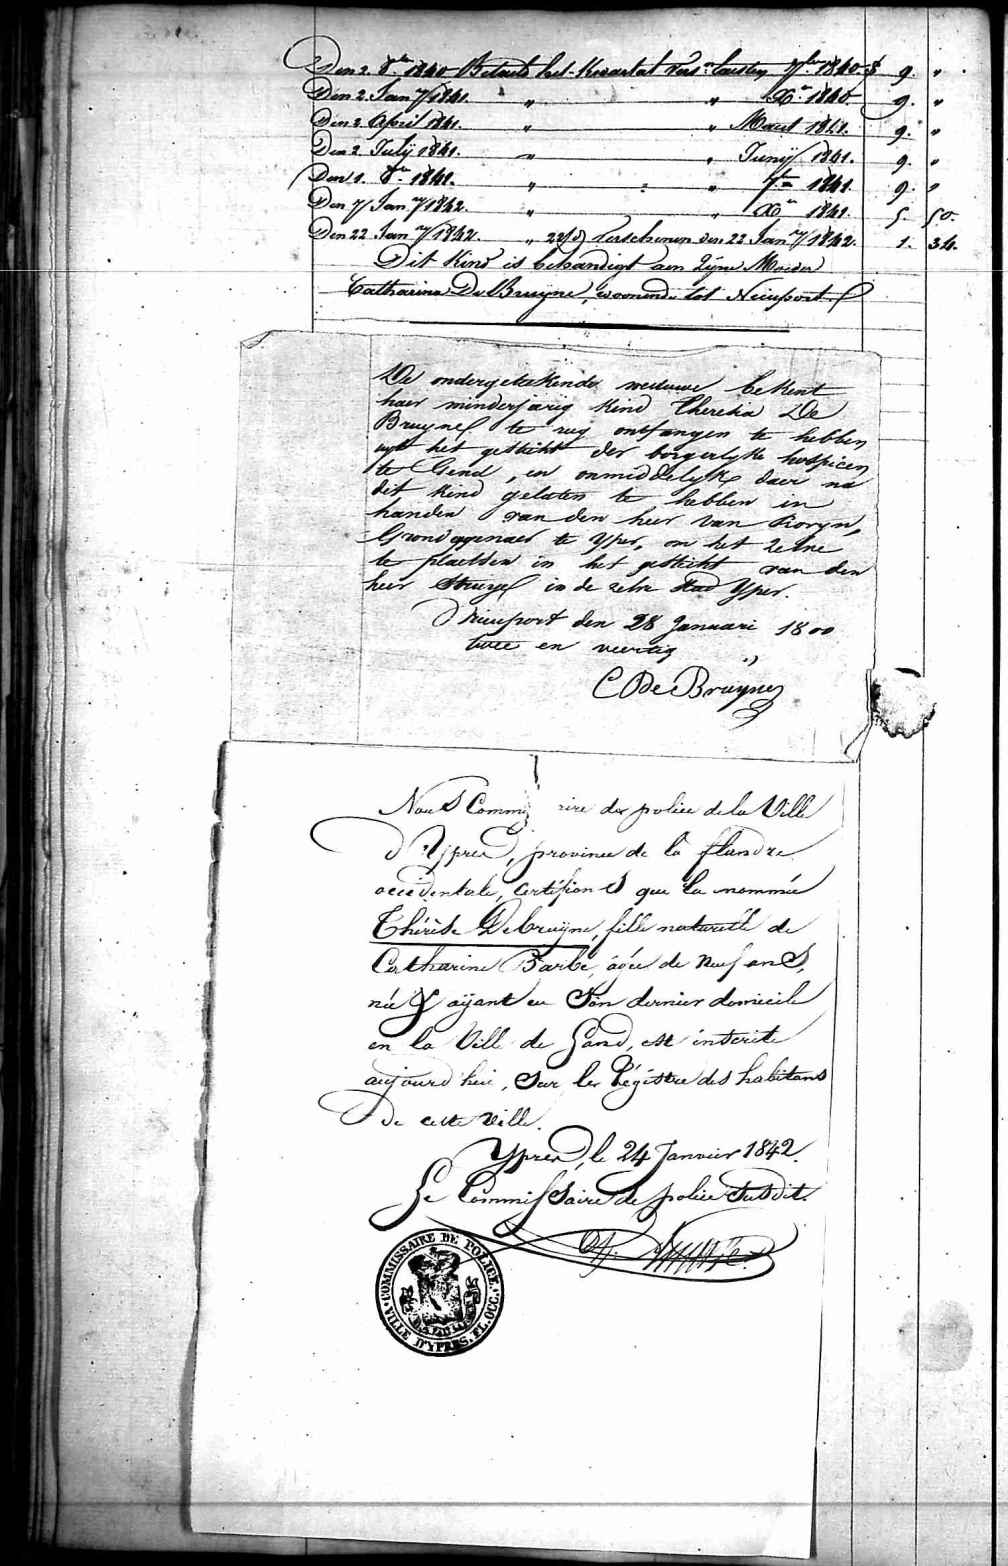 Den 2. 8bre 1840 Betaelt het Kwartal vers. laesten 7bre 1840 9. "
Den 2. Jany 1841. " " Xr. 1840 9. "
Den 2. April 1841. " " Maert 1841. 9. "
Den 2. July 1841. " " Junij 1841. 9. "
Den 1. 8re 1841. " " 7re 1841. 9. "
Den 7 Jany 1842. " " Xre 1841. 5. 50.
Den 22 Jany 1842. " 22/d Verschenen den 22 Jany 1842. 1. 34.
Dit Kind is behandigt aen Zijne Moeder
Catharina De Bruyne, woonende tot Nieuport
De ondergetekende weduwe bekent
haer minderjarig kind Theresia De
Bruyne te rug ontfangen te hebben
uyt het gesticht der borgerlyke hospicen
te Gend, en onmiddelyk daer na
dit kind gelaten te hebben in
handen van den heer Van
Grondeygenaer te Yper, om het zelve
te plaetsen in het gesticht van den
heer in de zelve stad Yper.
Nieuport den 28 Januari 1800
twee en veertig
C De Bruyne
Nous Commi ire de police de la Ville
d'Ypres, province de la flandre
occidentale, Certifions que la nommée
Thérèse Debruyne, fille naturelle de
Catharine Barbe, âgée de neuf ans,
née & aÿant eu Son dernier domicile
en la Ville de Gand, est inscrite
aujourd'hui, Sur les Régistre des habitans
de cette ville.
Ypres, le 24 Janvier 1842.
Le Commissaire de police Susdit.
COMMISSAIRE DE POLICE.
VILLE D'YPRES. FL. OCC.